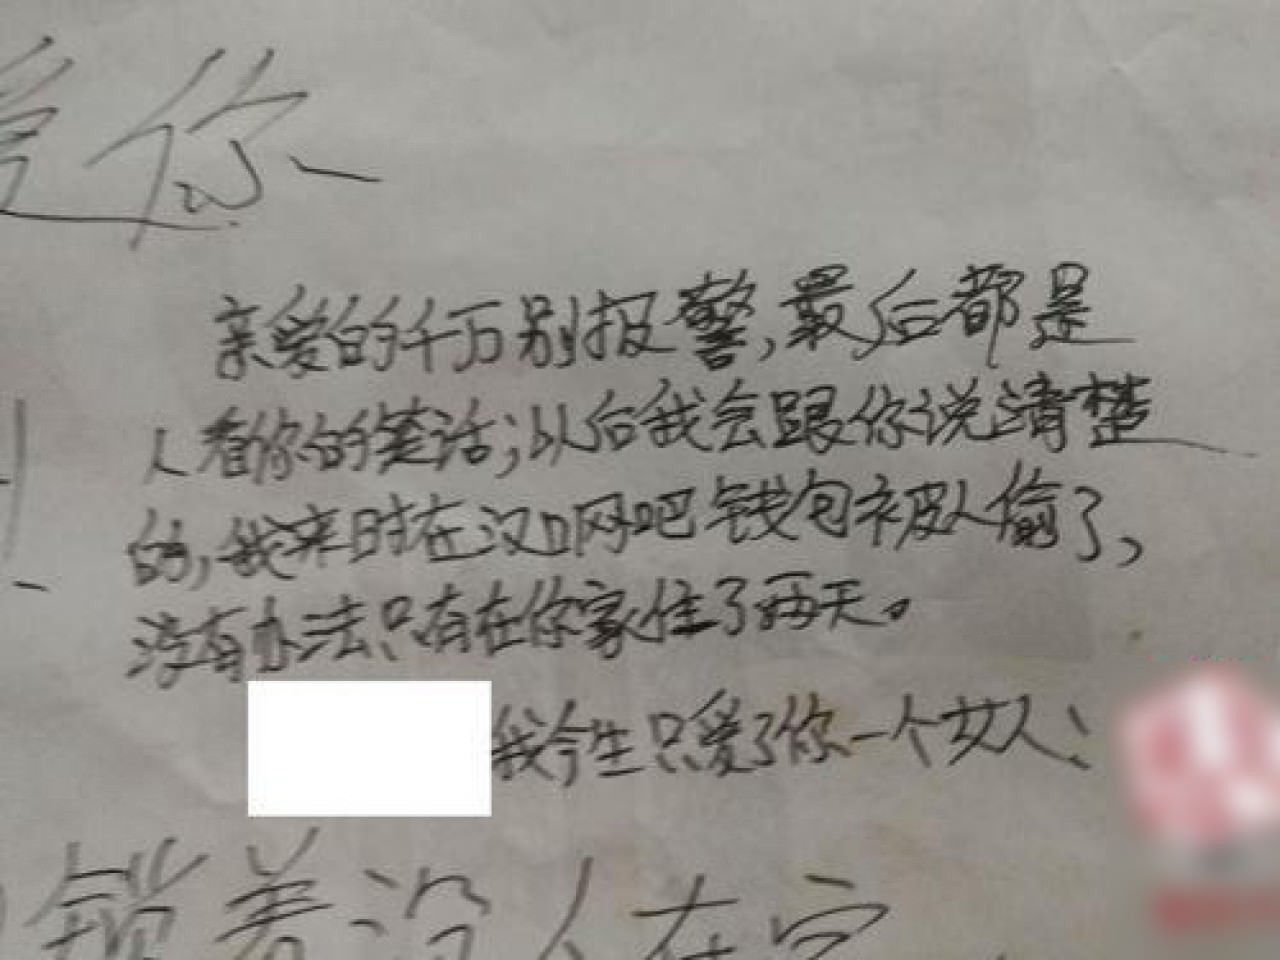 爱你、
亲爱的千万别报警,最后都是
人看你的笑话;以后我会跟你说清楚
的,我来时在汉口网吧钱包被人偷了,
没有办法只有在你家住了两天。
我今生只爱了你一个女人!
锁着没人在家